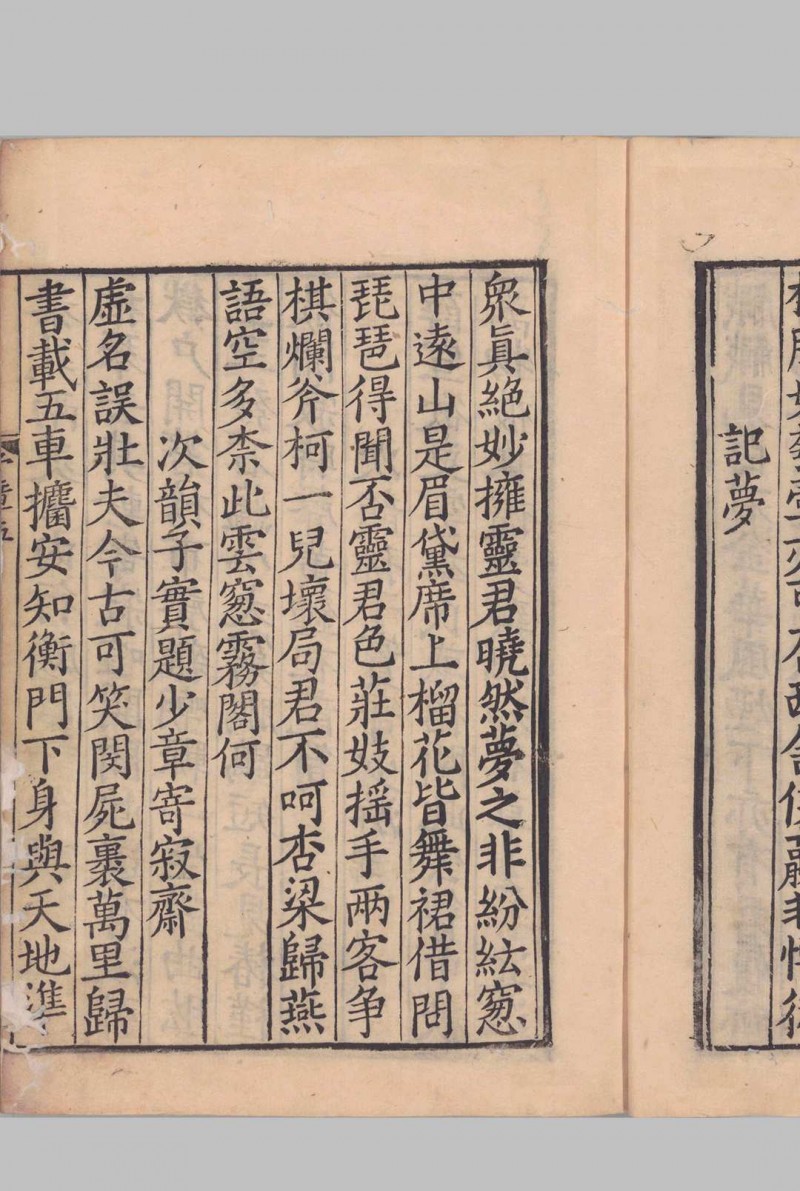 記夢
衆眞絶妙擁靈君曉然夢之非紛紜窻
中逺山是眉黛席上榴花皆舞裙借問
琵琶得聞否靈君色莊妓摇手兩客争
棋爛斧柯一兒壞局君不呵杏梁歸燕
語空多柰此雲窻霧閣何
次韻子實題少章寄寂齋
虚名誤壯夫今古可笑閔屍裹萬里歸
書載五車攟安知衡門下身與天地準